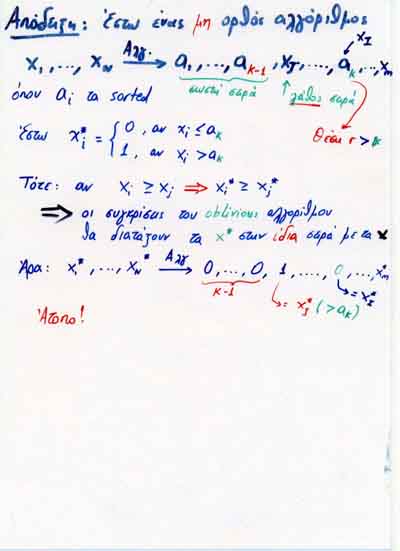 Απόδειξη: Έστω ένας μη ορθός αλγόριθμος
x_I
x_1, ..., x_N —Αλγ.→ a_1, ..., a_{k-1}, x_J, ..., a_k, ..., x_m
όπου a_i τα sorted σωστή σειρά ↑ λάθος σειρά
Θέση r > k
Έστω x_i^* = { 0, αν x_i ≤ a_k
1, αν x_i > a_k
Τότε: αν x_i ≥ x_j ⇒ x_i^* ≥ x_j^*
⇒ οι συγκρίσεις του oblivious αλγορίθμου
θα διατάξουν τα x^* στην ίδια σειρά με τα x
Άρα: x_1^*, ..., x_N^* —Αλγ→ 0, ..., 0, 1, ...., 0, ... x_m^*
k-1 = x_I^*
= x_I^* (> a_k)
Άτοπο!